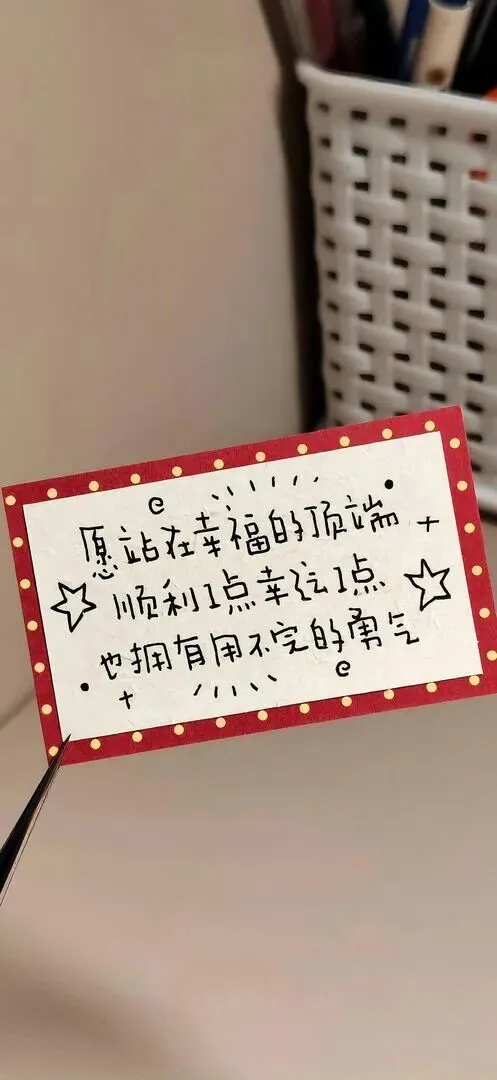 愿站在幸福的顶端
顺利1点幸运1点
也拥有用不完的勇气